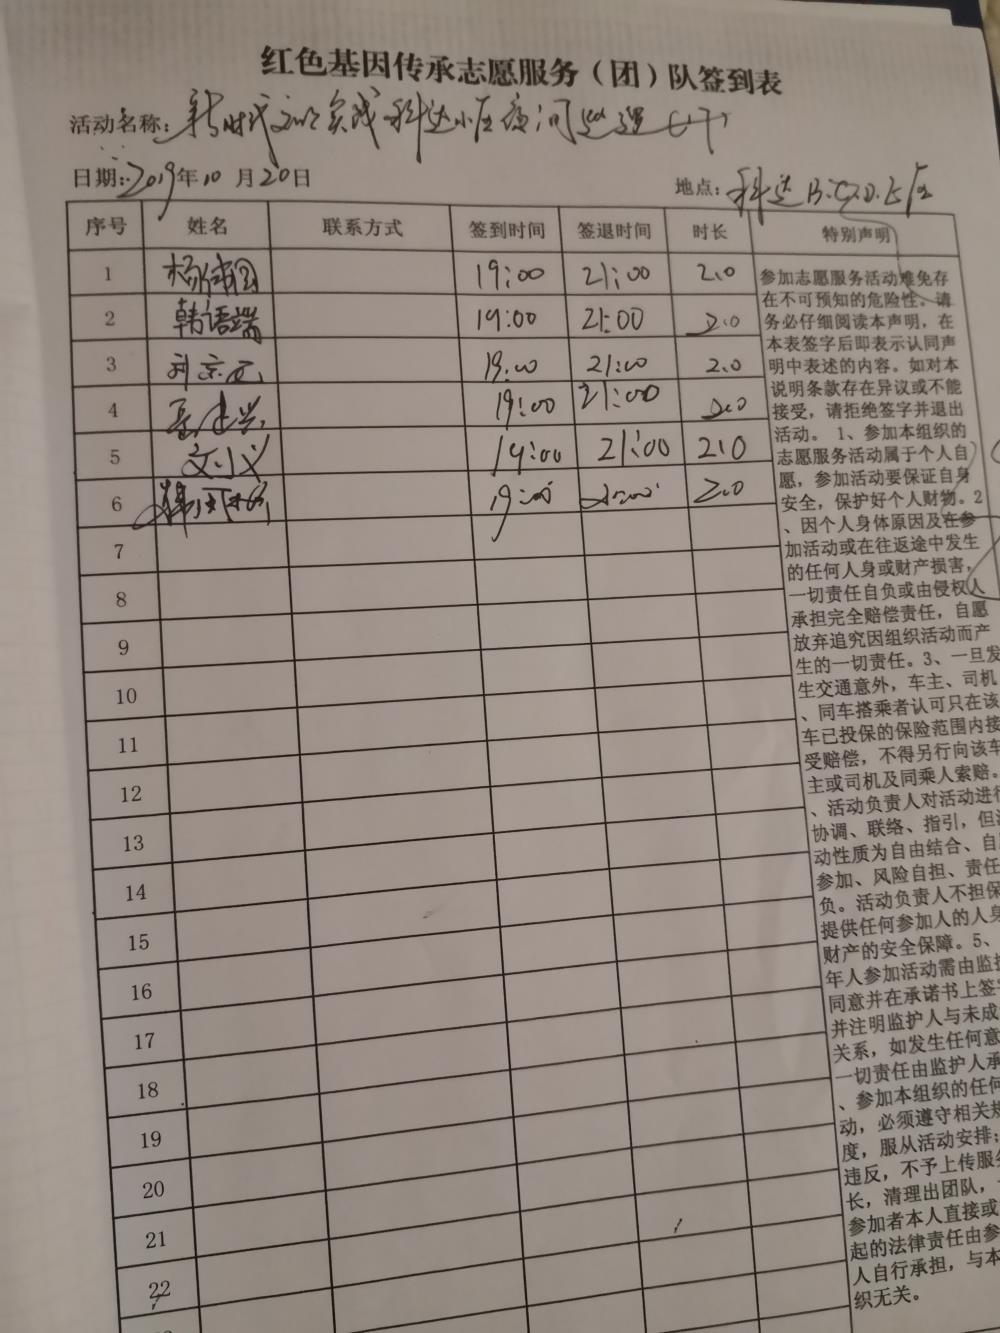 红色基因传承志愿服务（团）队签到表
活动名称：新时代文明实践科达小区夜间巡逻
日期：2019年10月20日
地点：科达B.C.D.E区
序号 姓名 联系方式 签到时间 签退时间 时长 特别声明
1 19:00 21:00 2.0
2 韩语端 19:00 21:00 2.0
3 19:00 21:00 2.0
4 19:00 21:00 2.0
5 19:00 21:00 2.0
6 19:00 21:00 2.0
7
8
9
10
11
12
13
14
15
16
17
18
19
20
21
22
参加志愿服务活动难免存
在不可预知的危险性。请
务必仔细阅读本声明，在
本表签字后即表示认同声
明中表述的内容。如对本
说明条款存在异议或不能
接受，请拒绝签字并退出
活动。1、参加本组织的
志愿服务活动属于个人自
愿，参加活动要保证自身
安全，保护好个人财物。2
、因个人身体原因及在参
加活动或在往返途中发生
的任何人身或财产损害，
一切责任自负或由侵权人
承担完全赔偿责任，自愿
放弃追究因组织活动而产
生的一切责任。3、一旦发
生交通意外，车主、司机
、同车搭乘者认可只在该
车已投保的保险范围内接
受赔偿，不得另行向该车
主或司机及同乘人索赔。
、活动负责人对活动进行
协调、联络、指引，但
动性质为自由结合、自
参加、风险自担、责任
负。活动负责人不担保
提供任何参加人的人身
财产的安全保障。5、
年人参加活动需由监护
同意并在承诺书上签字
并注明监护人与未成
关系，如发生任何意
一切责任由监护人承
、参加本组织的任何
动，必须遵守相关规
度，服从活动安排；
违反，不予上传服务
长，清理出团队，
参加者本人直接或
起的法律责任由参
人自行承担，与本
织无关。